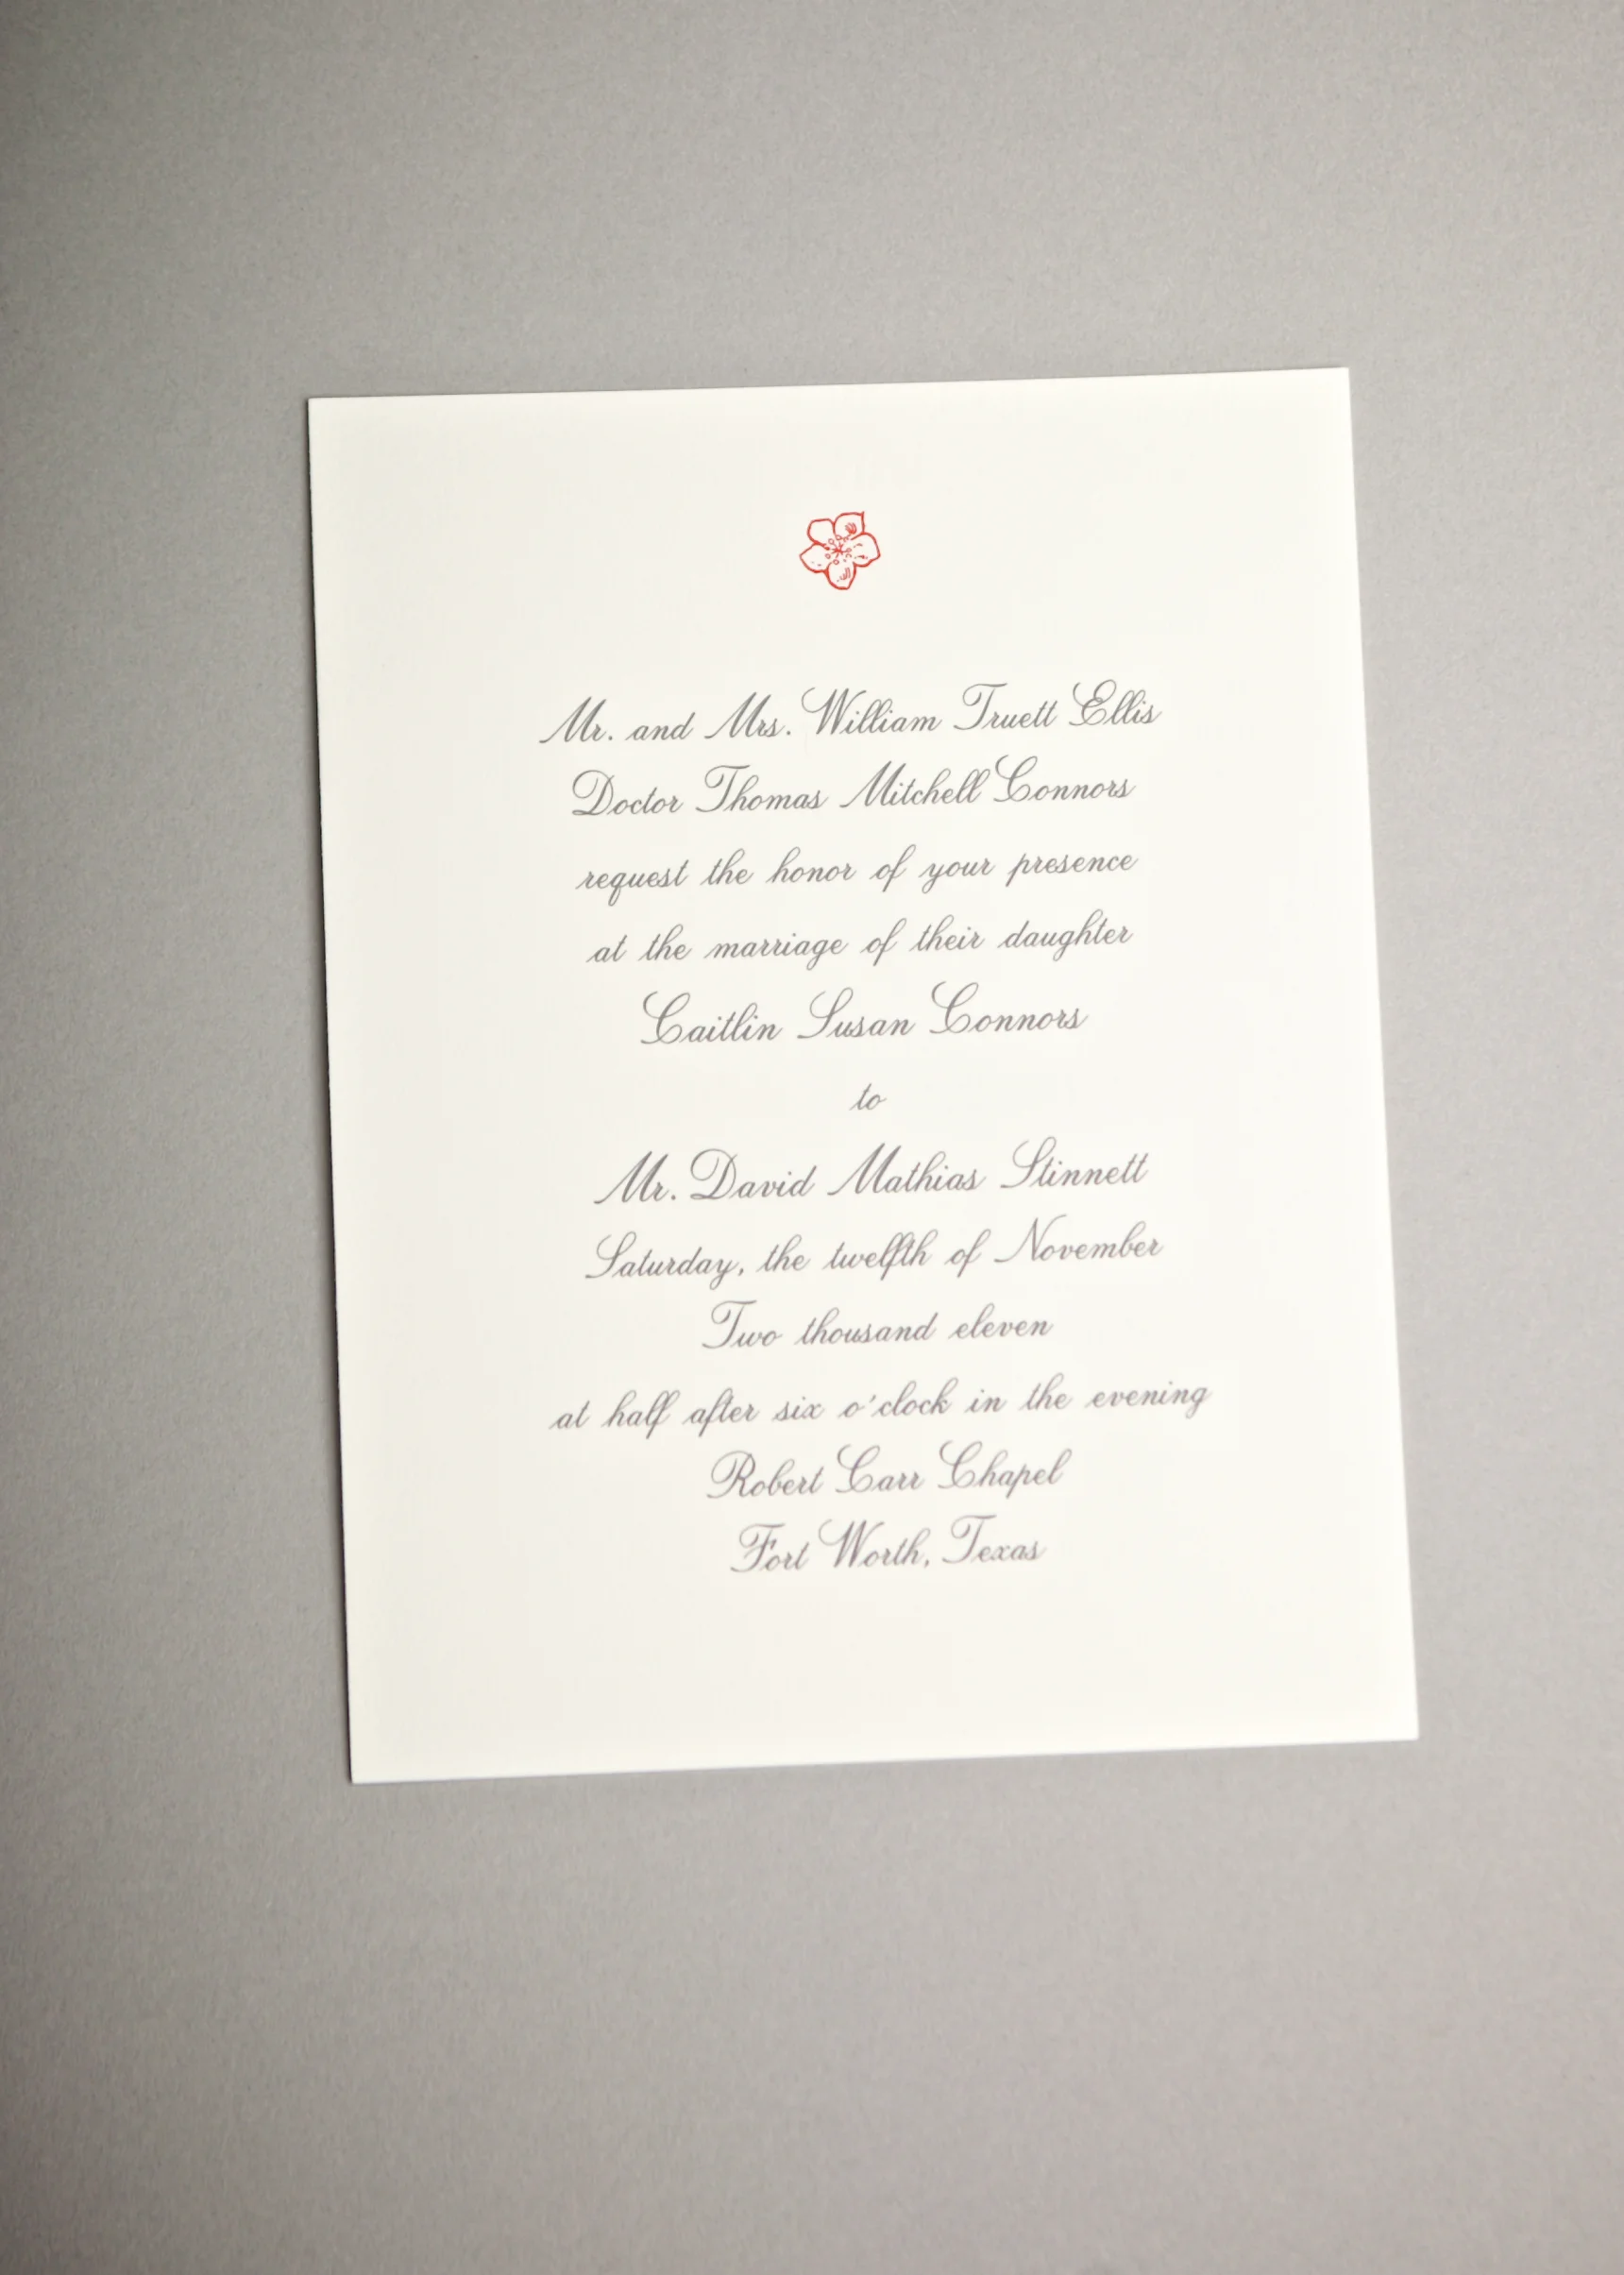 Mr. and Mrs. William Truett Ellis
Doctor Thomas Mitchell Connors
request the honor of your presence
at the marriage of their daughter
Caitlin Susan Connors
to
Mr. David Mathias Stinnett
Saturday, the twelfth of November
Two thousand eleven
at half after six o'clock in the evening
Robert Carr Chapel
Fort Worth, Texas